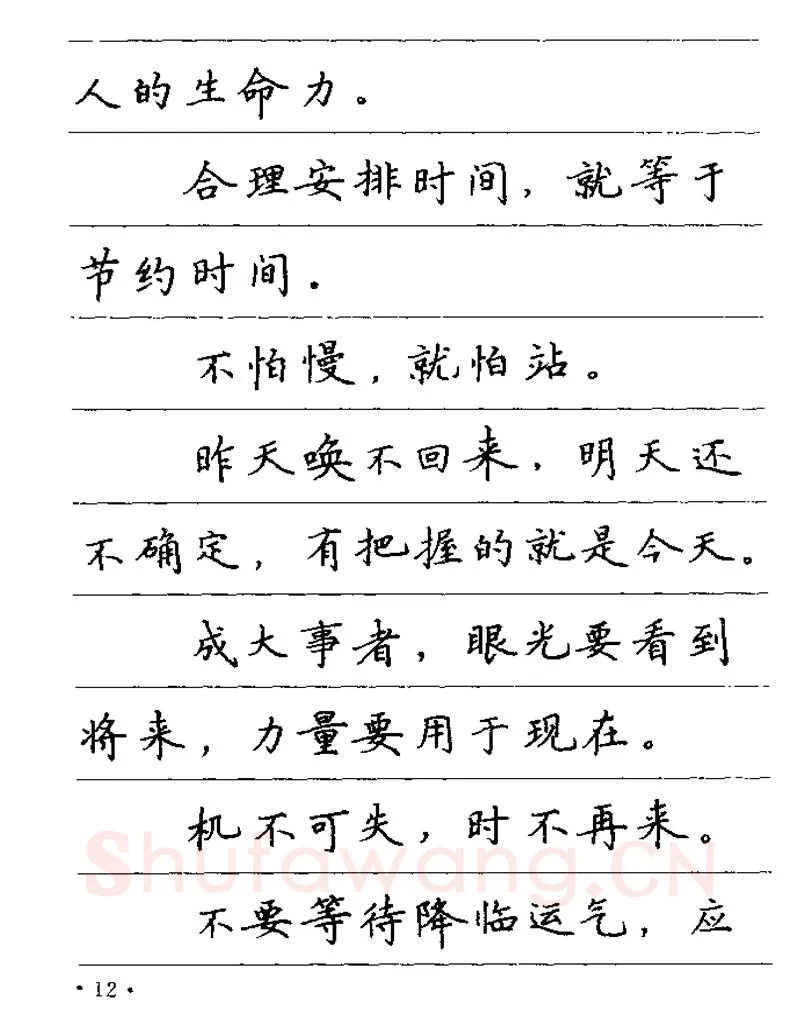 人的生命力。
合理安排时间，就等于
节约时间.
不怕慢，就怕站。
昨天唤不回来，明天还
不确定，有把握的就是今天。
成大事者，眼光要看到
将来，力量要用于现在。
机不可失，时不再来。
Shufawang.CN
不要等待降临运气，应
·12·